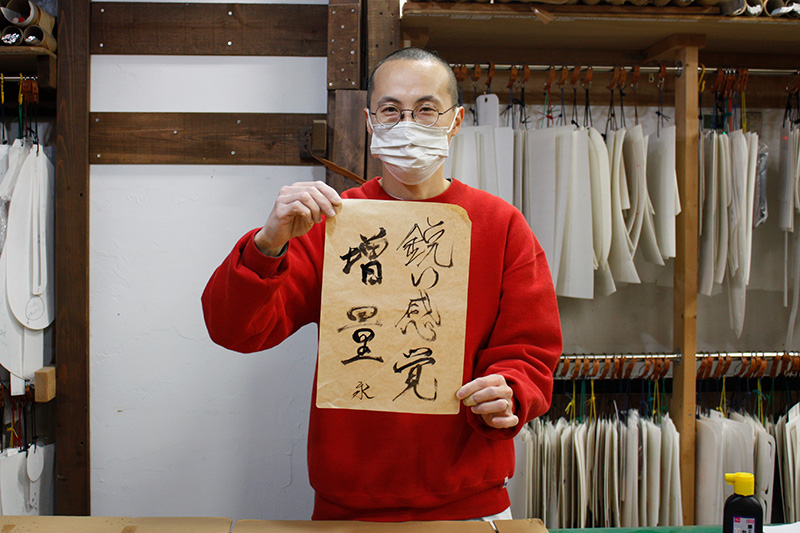 鋭い感覚
増量
永